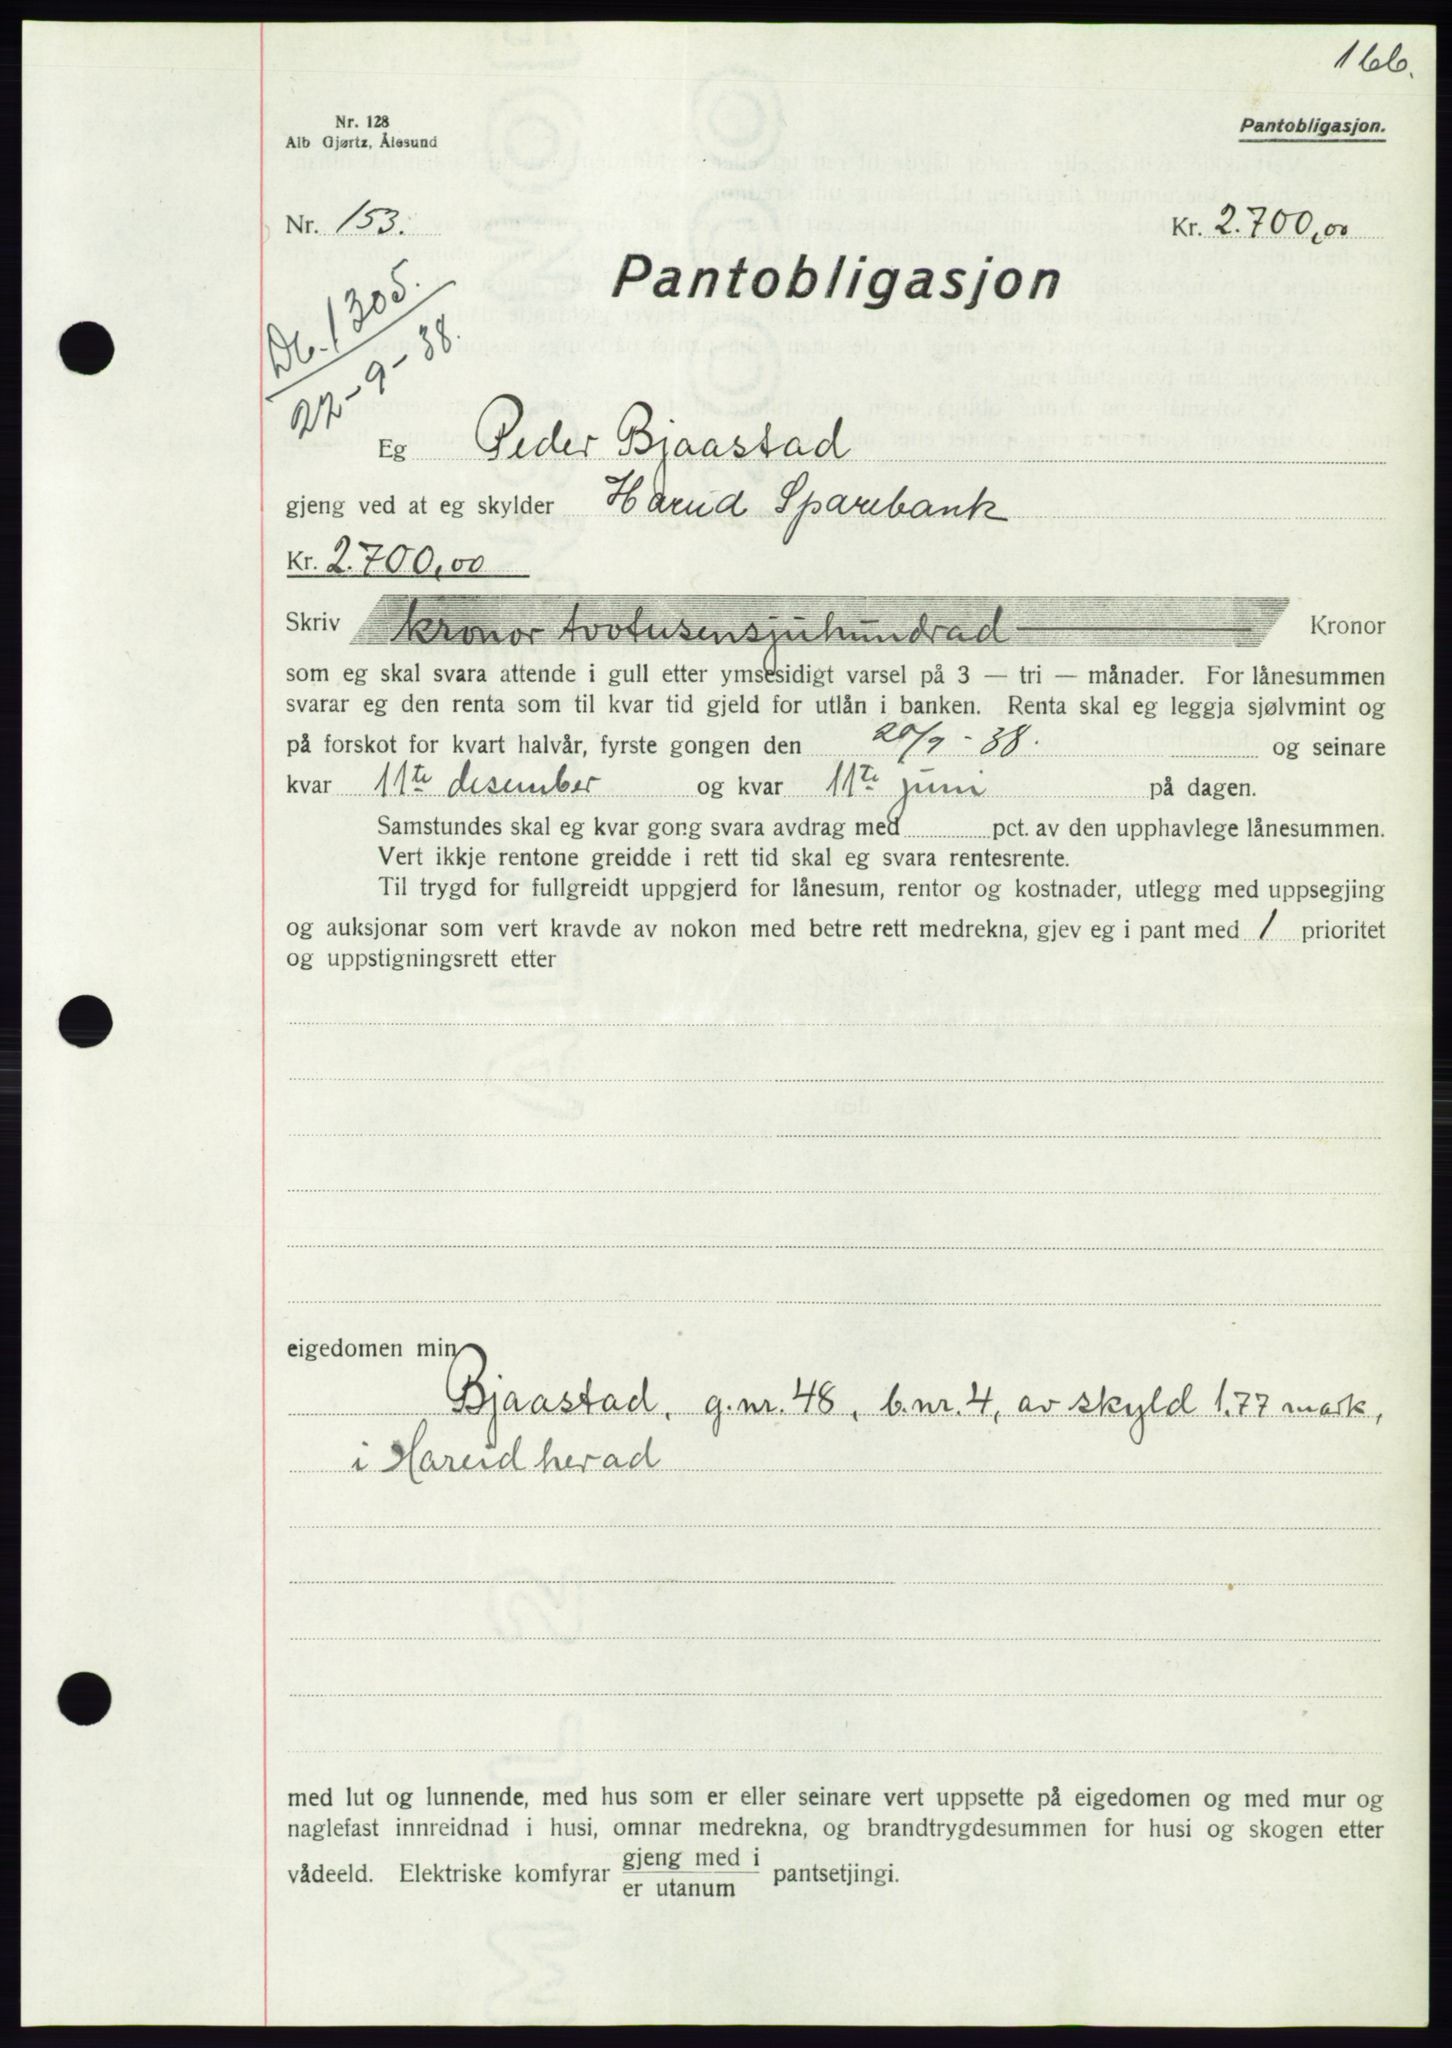 166.
Nr. 128
Alb Gjørtz, Ålesund
Pantobligasjon.
Nr. 153.
Kr. 2.700,00
Pantobligasjon
Db. 1305.
22-9-38.
Eg Peder Bjaastad
gjeng ved at eg skylder Hareid Sparebank
Kr. 2.700,00
Skriv kronor tvotusensjuhundrad Kronor
som eg skal svara attende i gull etter ymsesidigt varsel på 3 — tri — månader. For lånesummen
svarar eg den renta som til kvar tid gjeld for utlån i banken. Renta skal eg leggja sjølvmint og
på forskot for kvart halvår, fyrste gongen den 20/9-38. og seinare
kvar 11te desember og kvar 11te juni på dagen.
Samstundes skal eg kvar gong svara avdrag med pct. av den upphavlege lånesummen.
Vert ikkje rentone greidde i rett tid skal eg svara rentesrente.
Til trygd for fullgreidt uppgjerd for lånesum, rentor og kostnader, utlegg med uppsegjing
og auksjonar som vert kravde av nokon med betre rett medrekna, gjev eg i pant med 1 prioritet
og uppstigningsrett etter
eigedomen min
Bjaastad, g.nr. 48, b.nr. 4, av skyld 1.77 mark,
i Hareid herad
med lut og lunnende, med hus som er eller seinare vert uppsette på eigedomen og med mur og
naglefast innreidnad i husi, omnar medrekna, og brandtrygdesummen for husi og skogen etter
vådeeld. Elektriske komfyrar gjeng med i / er utanum pantsetjingi.